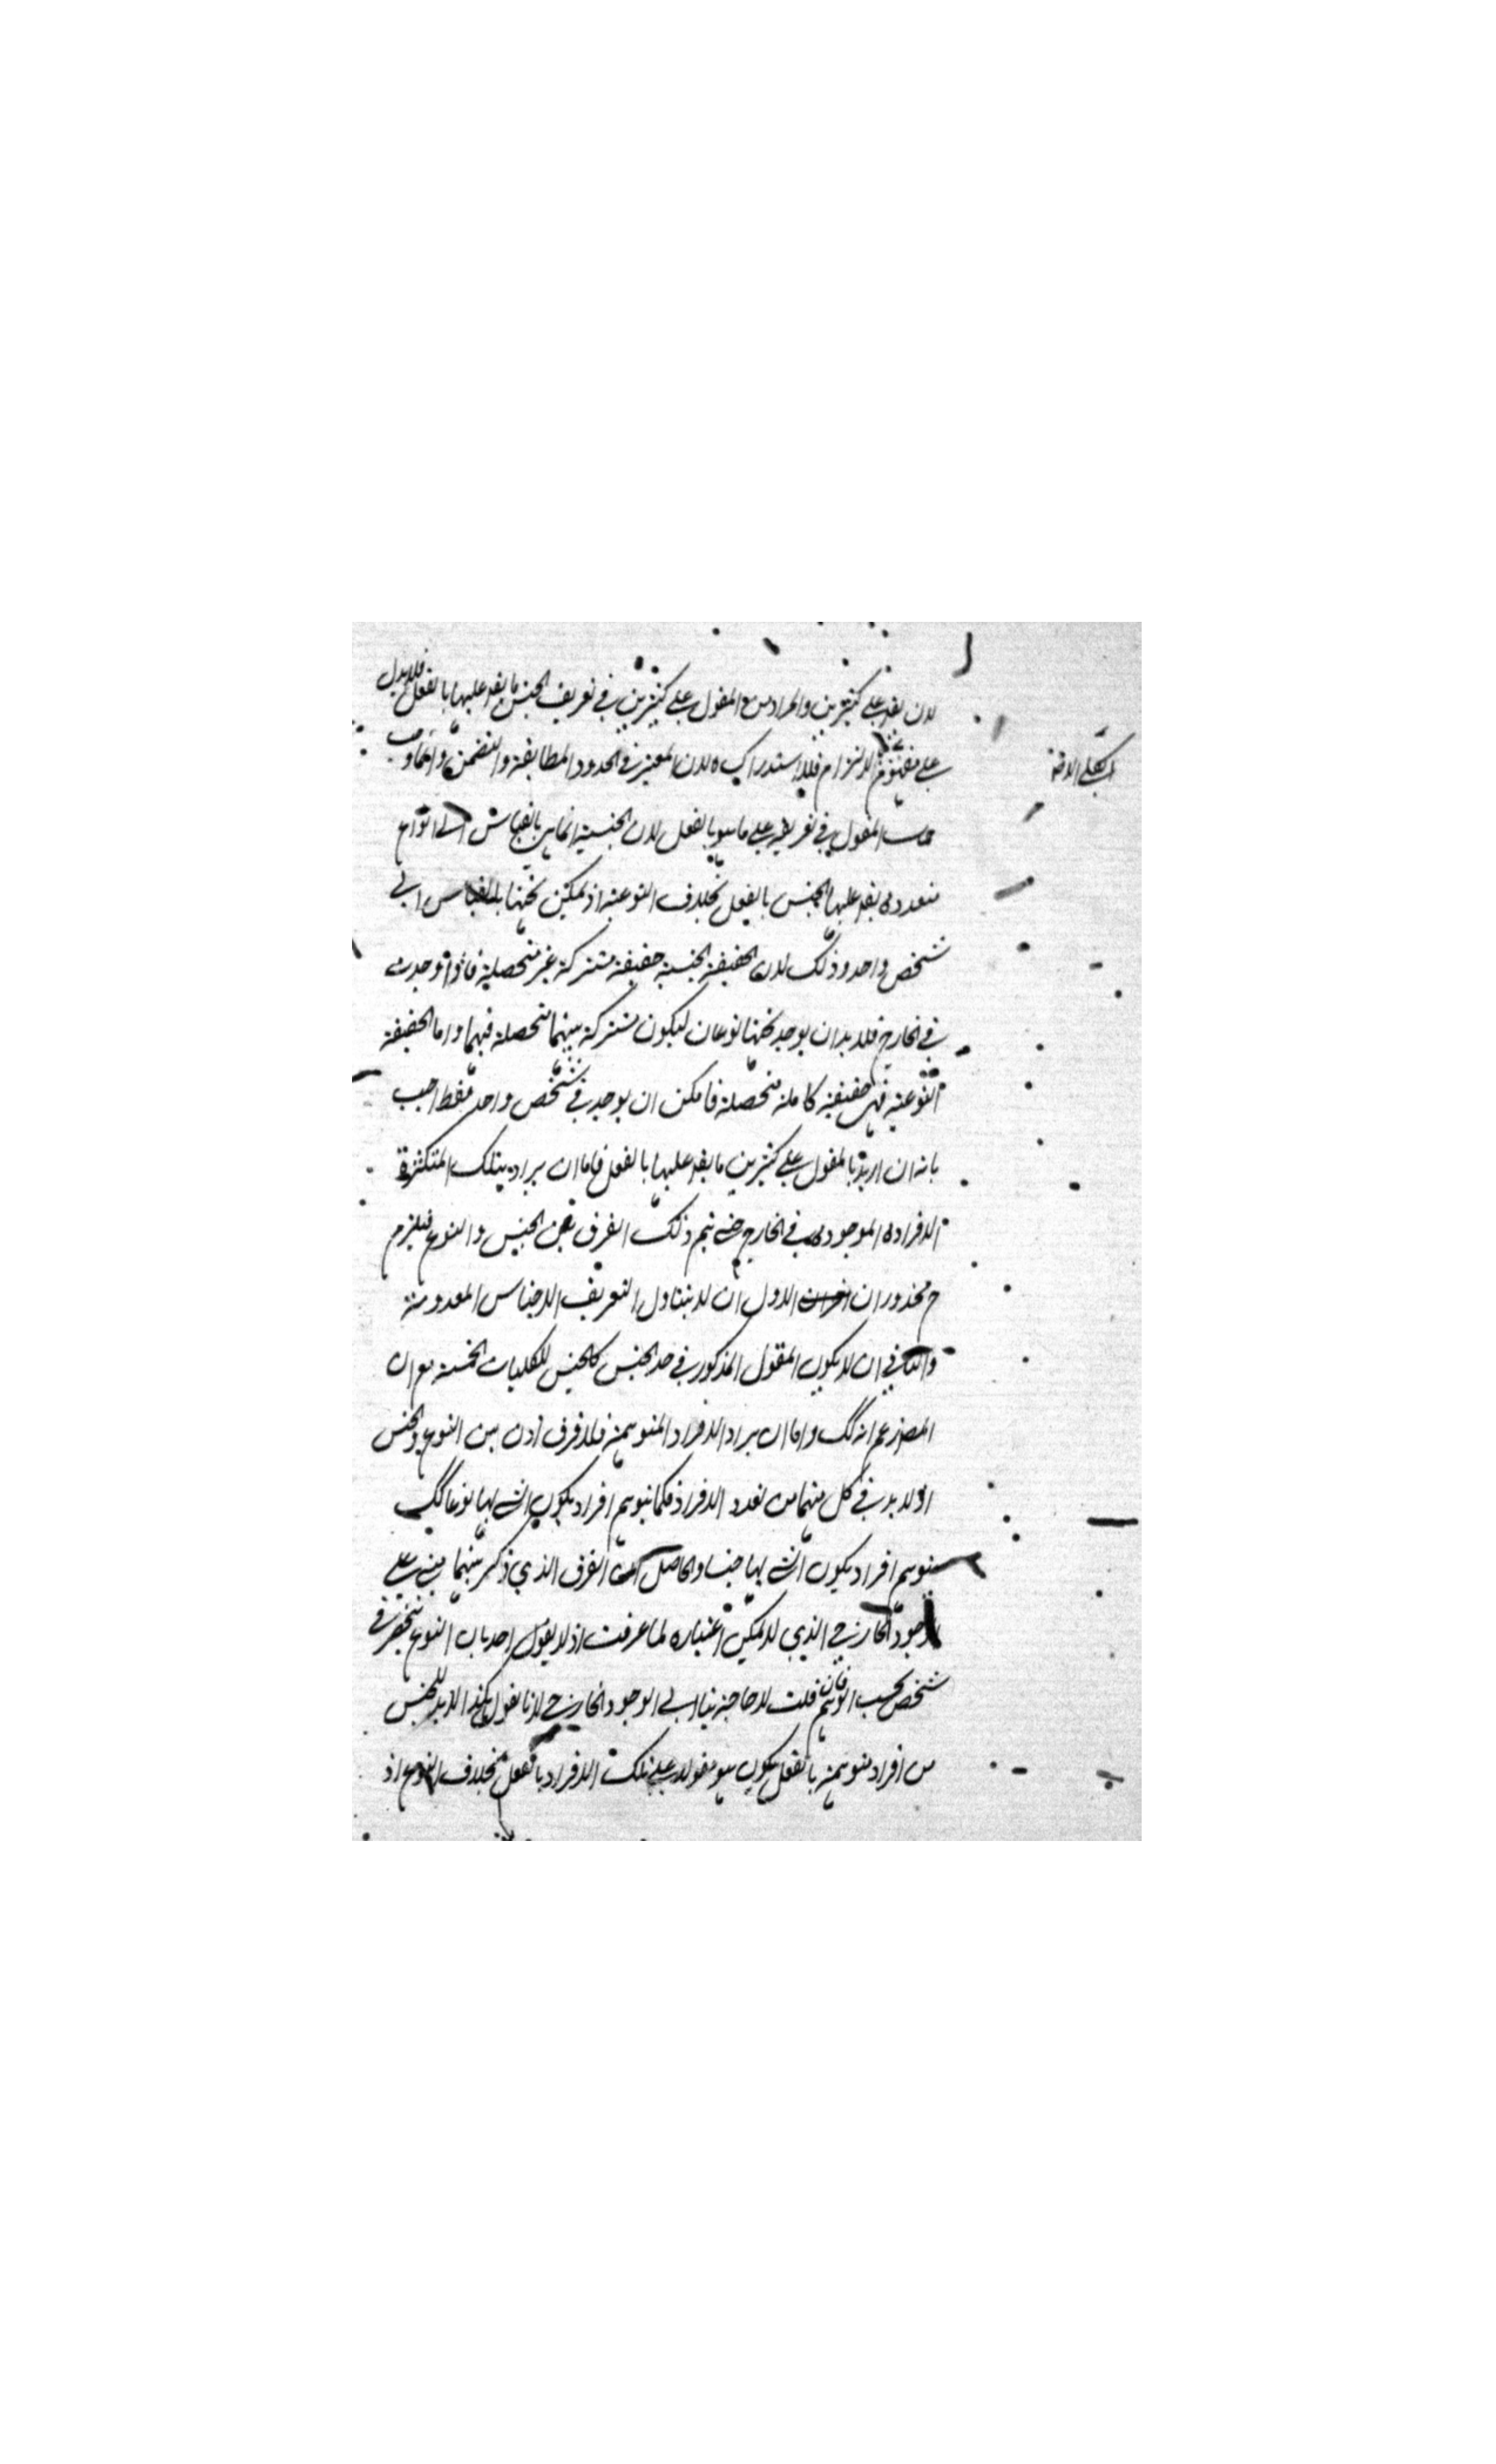 لان يقع على كثيرين والمراد من المقول على كثيرين في تعريف الجنس ما يقع عليها بالفعل فلا يدل
على مفهوم الالتزام فلا استدراك لان المعتبر في الحدود المطابقة والتضمن وانما
المقول في تعريفه على ما هو بالفعل لان الجنسية انما هي بالقياس الى انواع
متعددة يقع عليها الجنس بالفعل بخلاف النوعية اذ يمكن تحققها بالقياس الى
شخص واحد وذلك لان الحقيقة الجنسية حقيقة مشتركة غير متحصلة فاذا وجدت
في الخارج فلا بد ان يوجد تحتها نوعان ليكون مشتركة بينهما متحصلة فيهما واما الحقيقة
النوعية فهي حقيقة كاملة متحصلة فامكن ان يوجد في شخص واحد فقط اجيب
بانه ان اريد بالمقول على كثيرين ما يقع عليها بالفعل فاما ان يراد بتلك المتكثرة
الافراد الموجودة في الخارج حتى يتم ذلك الفرق بين الجنس والنوع فيلزم
ح محذوران الاول ان لا يتناول التعريف الاجناس المعدومة
والثاني ان لا يكون المقول المذكور في حد الجنس كالجنس للكليات الخمسة مع ان
المص زعم انه كك واما ان يراد الافراد المتوهمة فلا فرق اذن بين النوع والجنس
اذ لا بد في كل منهما من تعدد الافراد فكما يتوهم افراد يكون الشئ لها نوعا كك
يتوهم افراد يكون الشئ لها جنسا والحاصل ان الفرق الذي ذكر بينهما مبني على
الوجود الخارجي الذي لا يمكن اعتباره لما عرفت اذ لا يقول احد بان النوع منحصر في
شخص بحسب التوهم فان قلت لا حاجة بنا الى الوجود الخارجي لانا نقول هكذا لا بد للجنس
من افراد متوهمة بالفعل يكون هو مقولا على تلك الافراد بالفعل بخلاف النوع اذ